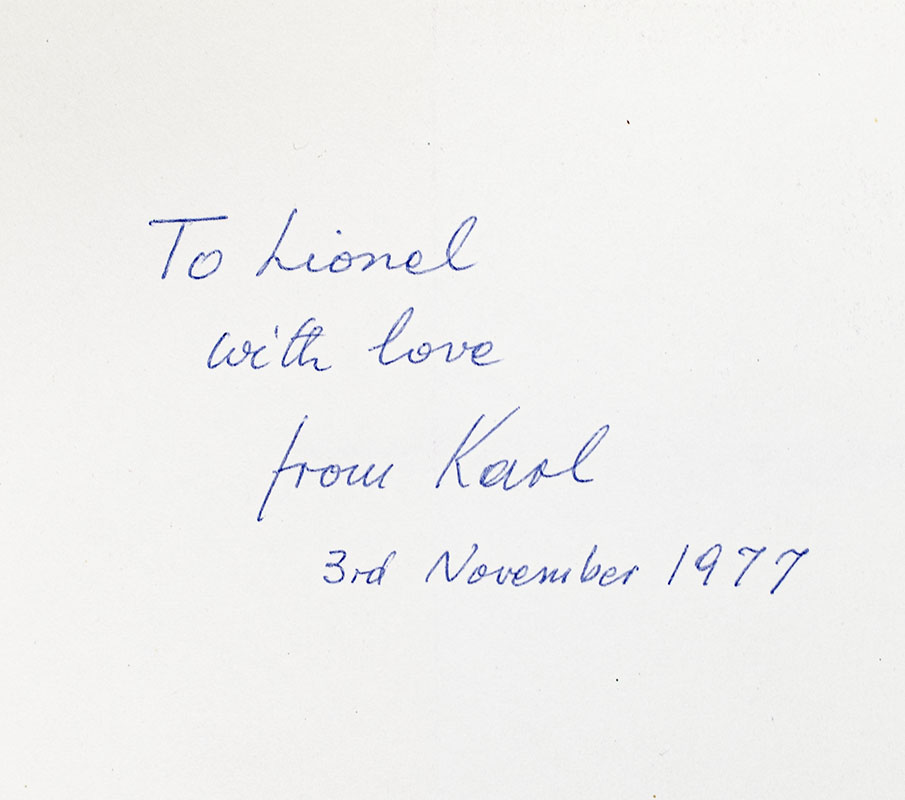 To Lionel
with love
from Karl
3rd November 1977